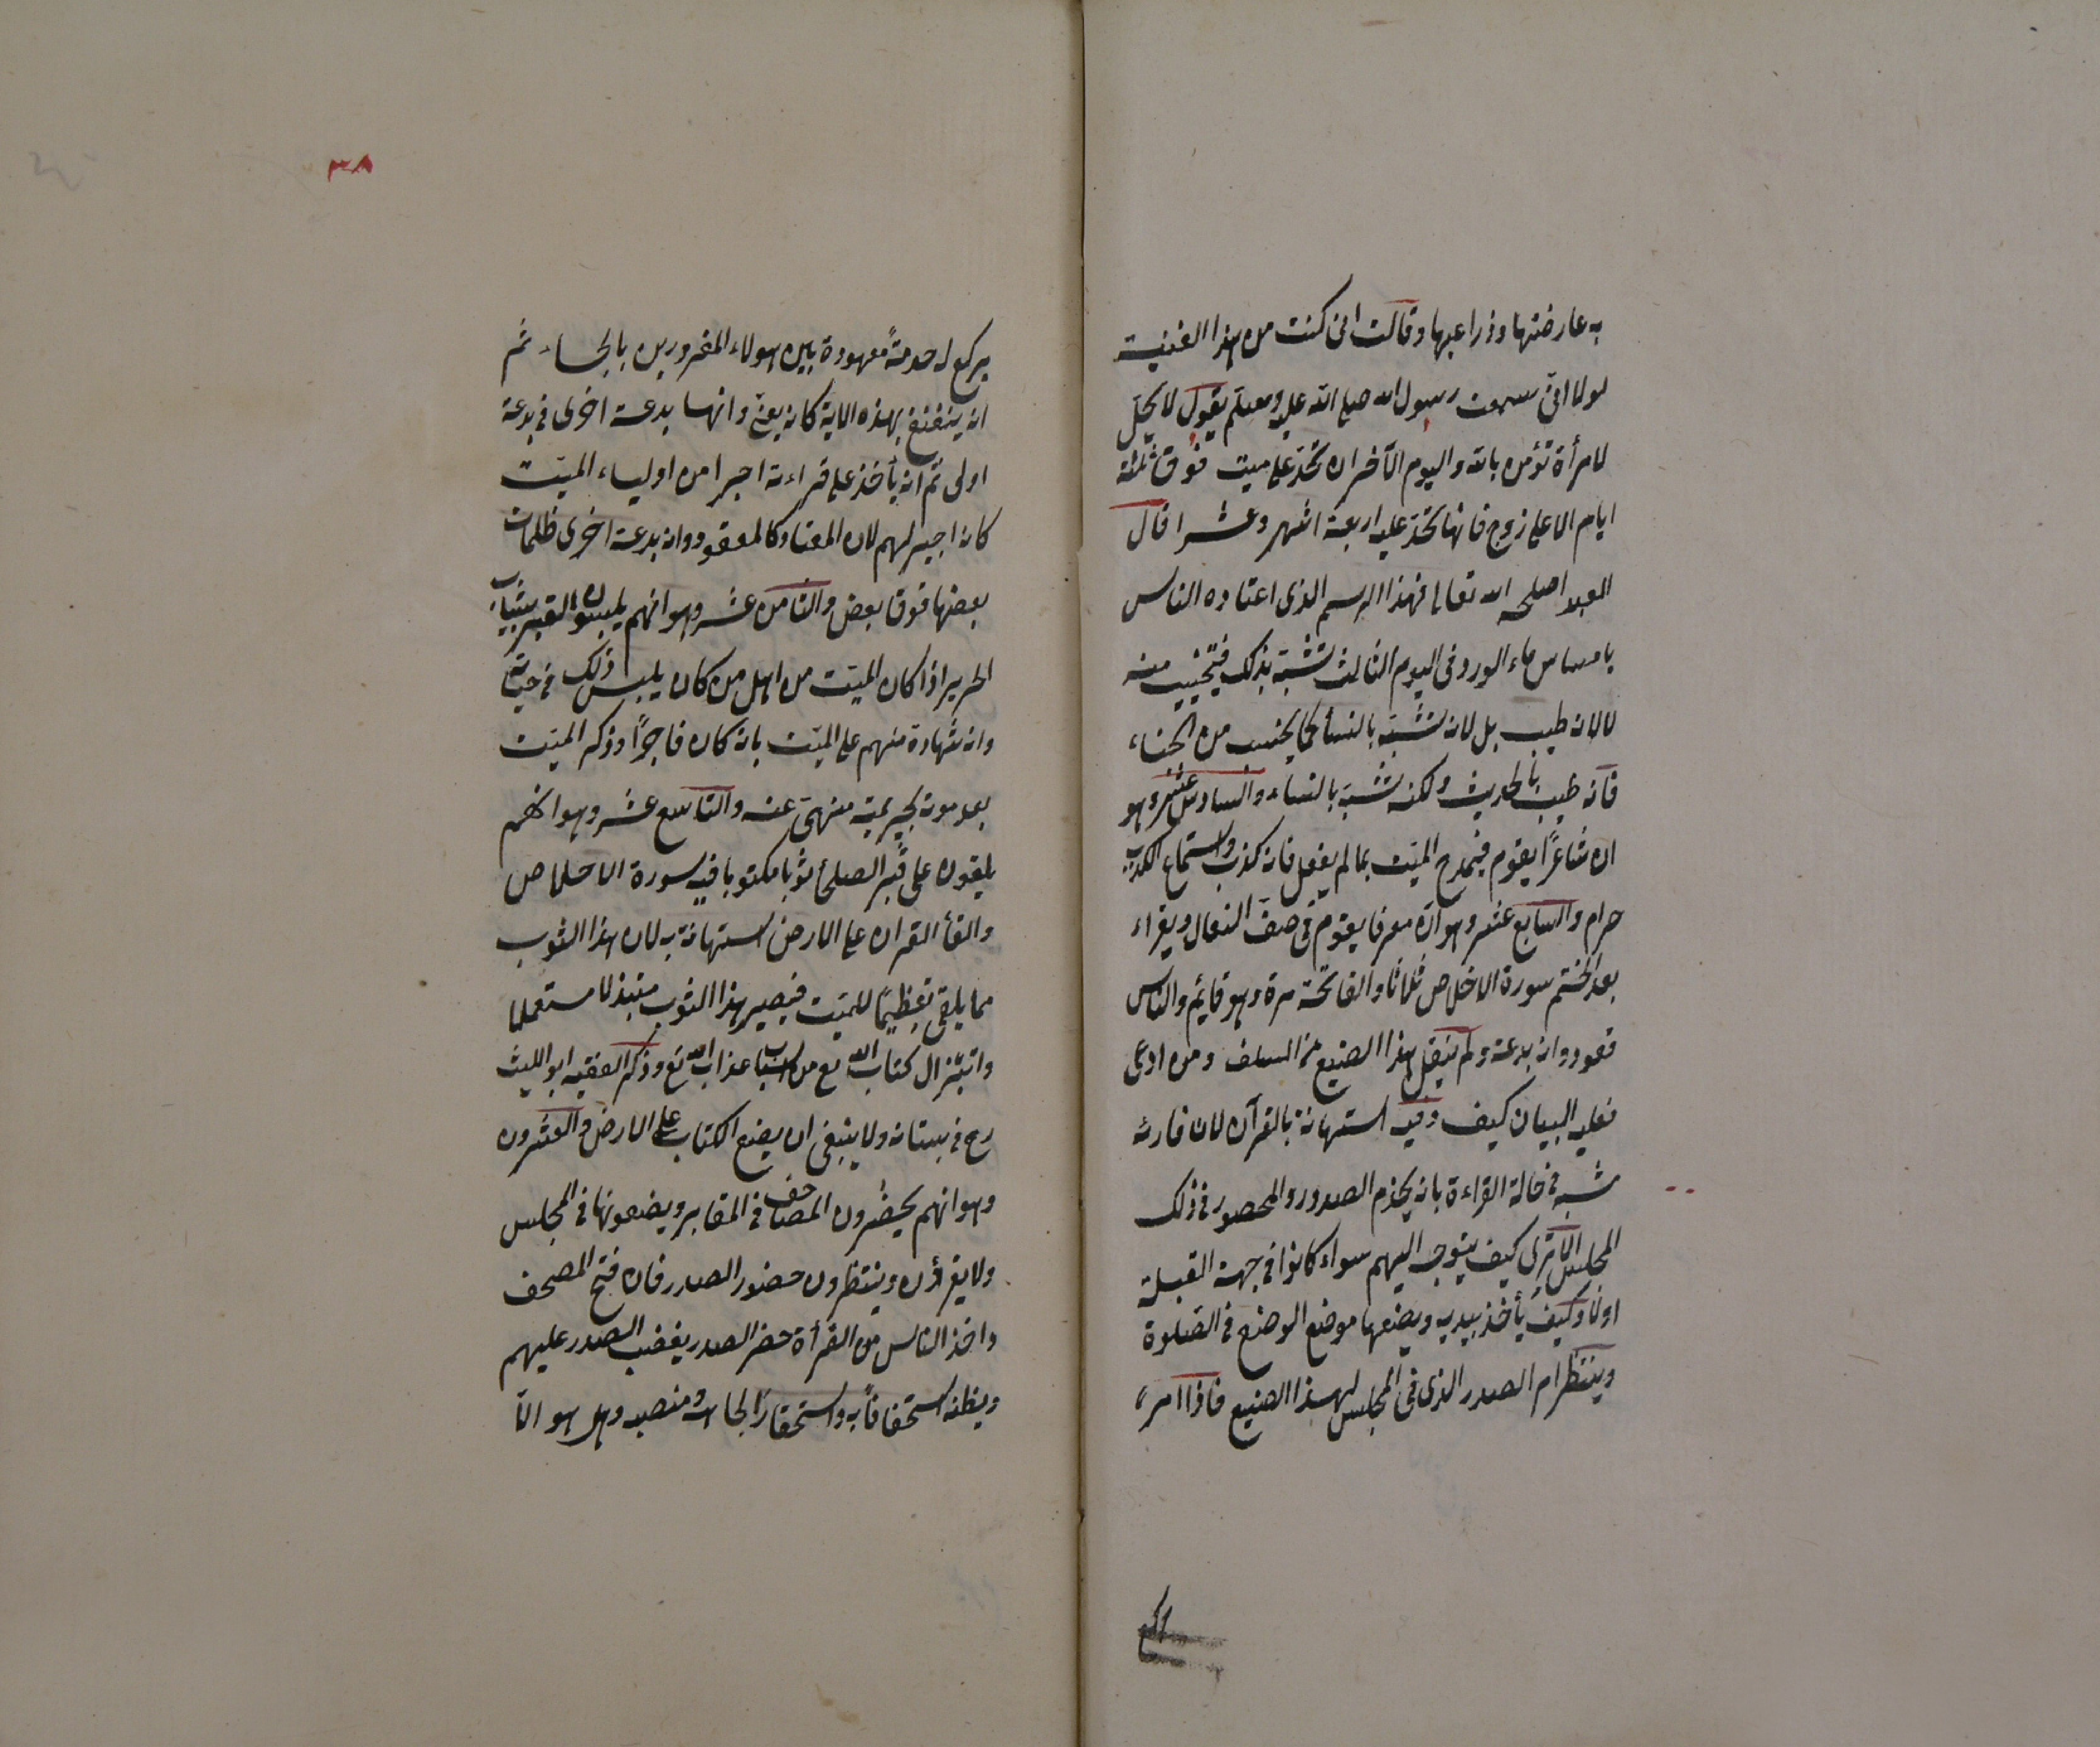 به عارضتها وذراعيها وقالت انى كنت من هذا الغنيت
لولا انى سمعت رسول الله صلى الله عليه وسلم يقول لا يحل
لامرأة تؤمن بالله واليوم الآخر ان تحدّ على ميت فوق ثلثة
ايام الا على زوج فانها تحدّ عليه اربعة اشهر وعشرا قال
العبد اصلحه الله تعالى فهذا الرسم الذى اعتاده الناس
بامساس ماء الورد فى اليوم الثالث تشبّه بذلك فيجتنب منه
لا لانه طيب بل لانه تشبّه بالنساء كما يجتنب من الحناء
فانه طيب بالحديث ولكنه تشبّه بالنساء والسادس عشر وهو
ان شاعرًا يقوم فيمدح الميّت بما لم يفعل فانه كذب واستماع الكذب
حرام والسابع عشر وهو انّ معرفا يقوم فى صفّ النعال ويقراء
بعد الختم سورة الاخلاص ثلاثا والفاتحة مرة وهو قائم والناس
قعود وانه بدعة ولم ينقل هذا الصنيع من السلف ومن ادعى
فعليه البيان كيف وفيه استهانة بالقرآن لان قارئه
شبه فى حالة القراءة بانه يخدم الصدور والحضور فى ذلك
المجلس الا ترى كيف يتوجه اليهم سواء كانوا فى جهة القبلة
اولا وكيف يأخذ بيديه ويضعها موضع الوضع فى الصلوة
وينتظر ام الصدر الذى فى المجلس لهذا الصنيع فاذا امره
يركع
٣٨
يركع له خدمةً معهودة بين هولاء المغرورين بالجاه ثم
انه يتغنغ بهذه الاية كانه يغنّى وانها بدعة اخرى فى بدعة
اولى ثم انه يأخذ على قراءته اجرا من اولياء الميّت
كانه اجير لهم لان المعتاد كالمعقود وانه بدعة اخرى ظلمات
بعضها فوق بعض والثامن عشر وهو انهم يلبسون القبر بثياب
الحرير اذا كان الميّت من اهل من كان يلبس ذلك فى حياته
وانه شهادة منهم على الميّت بانه كان فاجرًا وذكر الميّت
بعد موته بجريمة منهىّ عنه والتاسع عشر وهو انهم
يلقون على قبر الصلحاء ثوبا مكتوبا فيه سورة الاخلاص
والقاء القران على الارض استهانة به لان هذا الثوب
مما يلقى تعظيمًا للميّت فيصير هذا الثوب مبتذلا مستعملا
وابتذال كتاب الله تع من اسباب عذاب الله تع وذكر الفقيه ابو الليث
رح فى بستانه ولا ينبغى ان يضع الكتاب على الارض والعشرون
وهو انهم يحضرون المصاحف فى المقابر ويضعونها فى المجلس
ولا يقرأون وينتظرون حضور الصدر فان فتح المصحف
واخذ الناس من القرأة حضر الصدر يغضب الصدر عليهم
ويظنه استخفافًا به واستحقارًا لجاهه ومنصبه وهل هو الّا